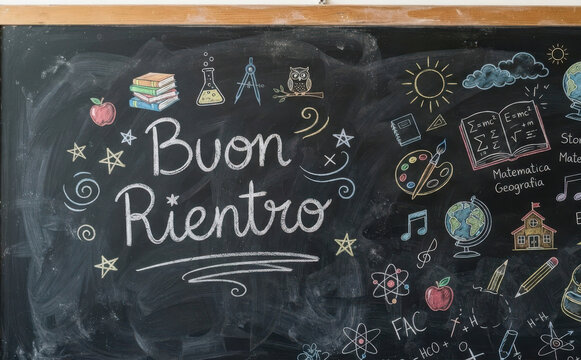 Buon
Rientro
Σ=mc²
E=mc²
Matematica
Geografia
Sto
Mate
FAC
HCO